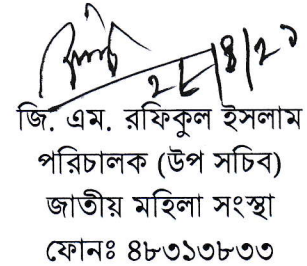 ২৮/৪/২১
জি. এম. রফিকুল ইসলাম
পরিচালক (উপ সচিব)
জাতীয় মহিলা সংস্থা
ফোনঃ ৪৮৩১৩৮৩৩